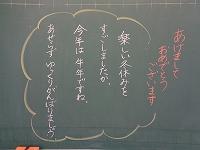 あけまして
おめでとう
ございます
楽しい冬休みを
すごしましたか。
今年は 牛年ですね。
あせらず ゆっくりがんばりましょう